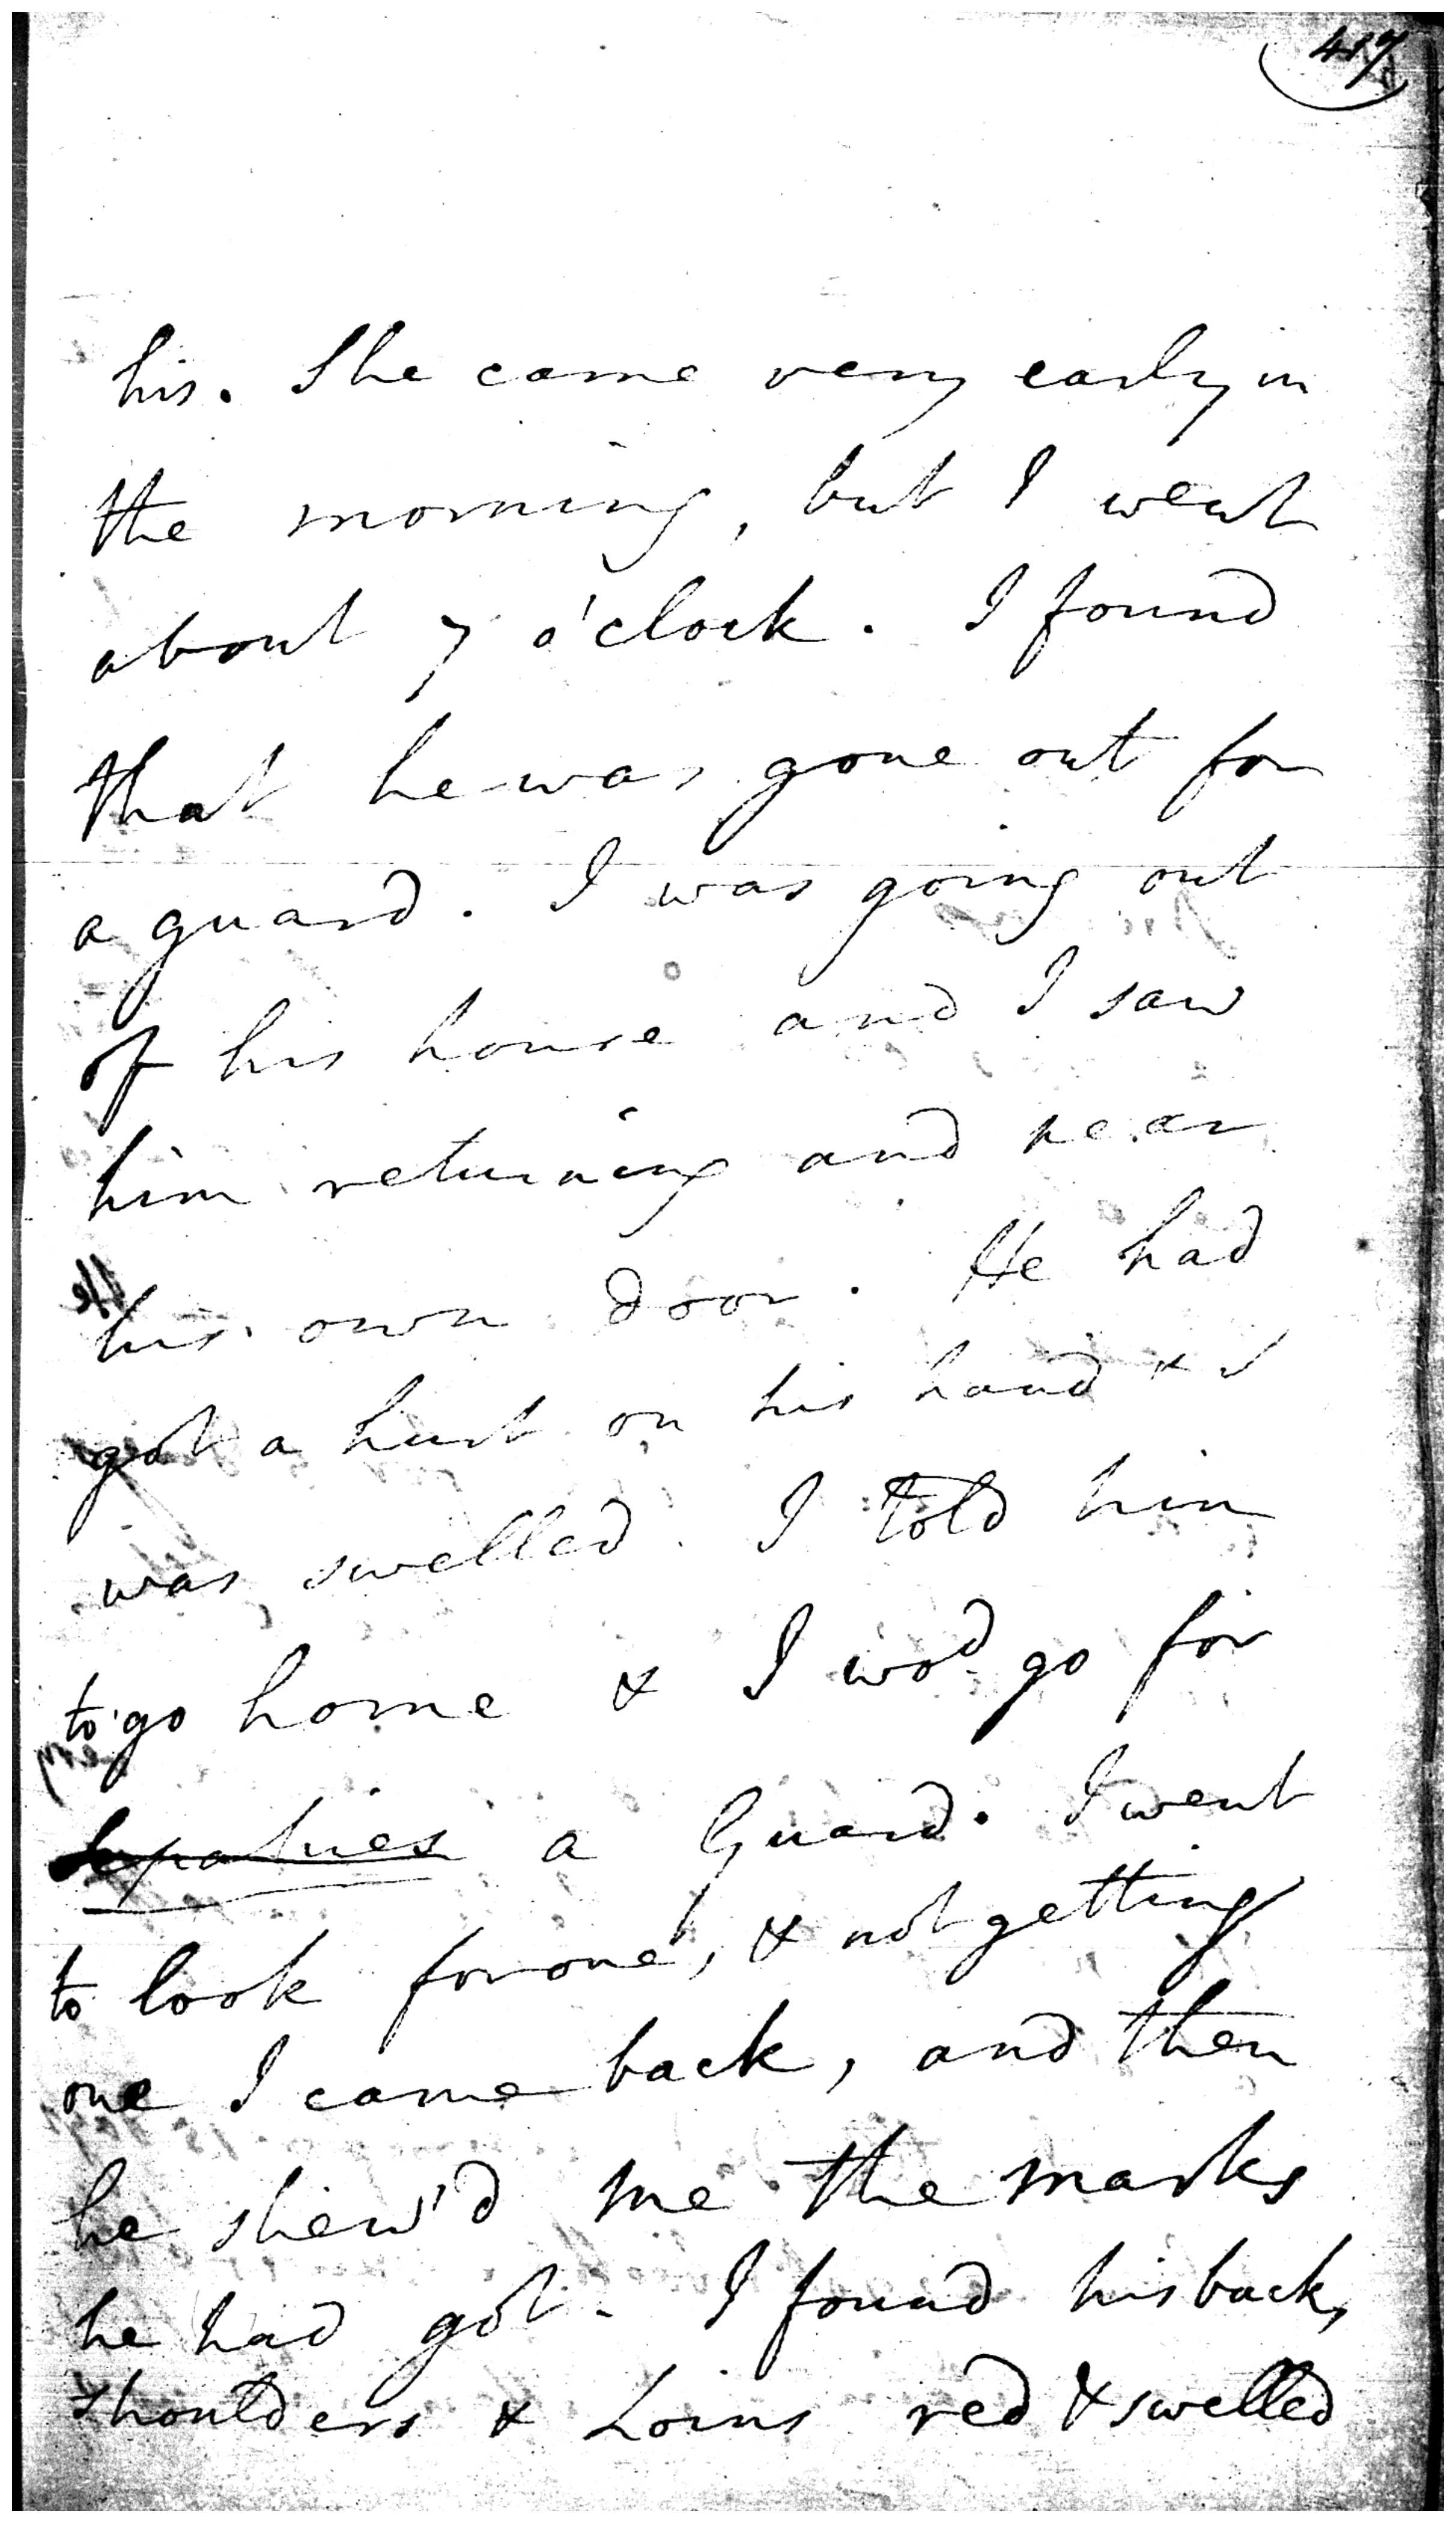 417
his. She came very early in
the morning, but I went
about 7 o'clock. I found
that he was gone out for
a guard. I was going out
of his house and I saw
him returning and near
his own door. He had
got a hurt on his hand & I
was swelled. I told him
to go home & I wod go for
a Guard. I went
to look for one, & not getting
one I came back, and then
he shew'd me the marks
he had got. I found his back,
shoulders & Loins red & swelled